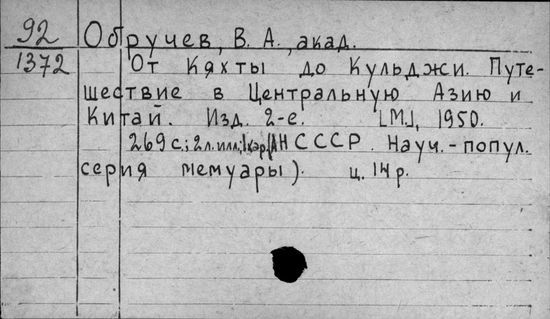 92
1372
Обручев, В. А., акад.
От Кяхты до Кульджи. Путе-
шествие в Центральную Азию и
Китай. Изд. 2-е. [М.], 1950.
269 с.; 2 л. илл.; 1 кар. (АН СССР. Науч.-попул.
серия мемуары). ц. 14 р.